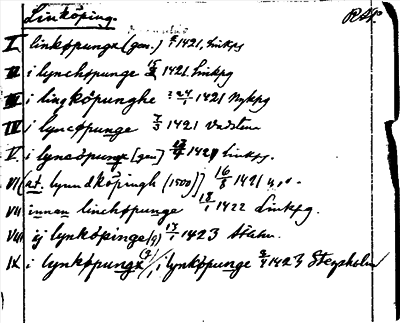 Linköping. RAP.
I linköpunga (gen.) 1421 Linkpg
II i lynchöpunge 1421 Linkpg
III i lingköpunghe 1421 Nykpg
IV i lyncöpunge 7/3 1421 Vadstena
V. i lyncöpungx [gen] 1421 Linkpg.
VI (ad. lynndköpingh (1500)] 16/8 1421
VII innan linchöpunge 18/1 1422 Linkpg.
VIII ij lynköpinge (g) 17/1 1423 Sthlm.
IX i lynköpungx (g)/, i lynköpunge 1423 Stegeholm